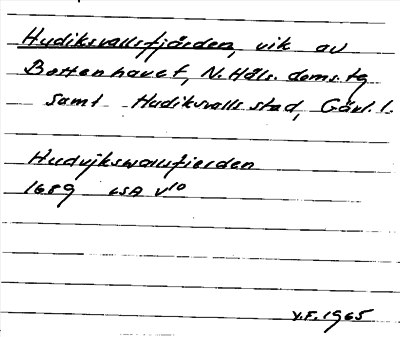 Hudiksvallsfjärden, vik av
Bottenhavet, N. Häls. doms. tg
samt Hudiksvalls stad, Gävl. l.
Hudvjkswallsfierden
1689 LSA V10
V.F. 1965